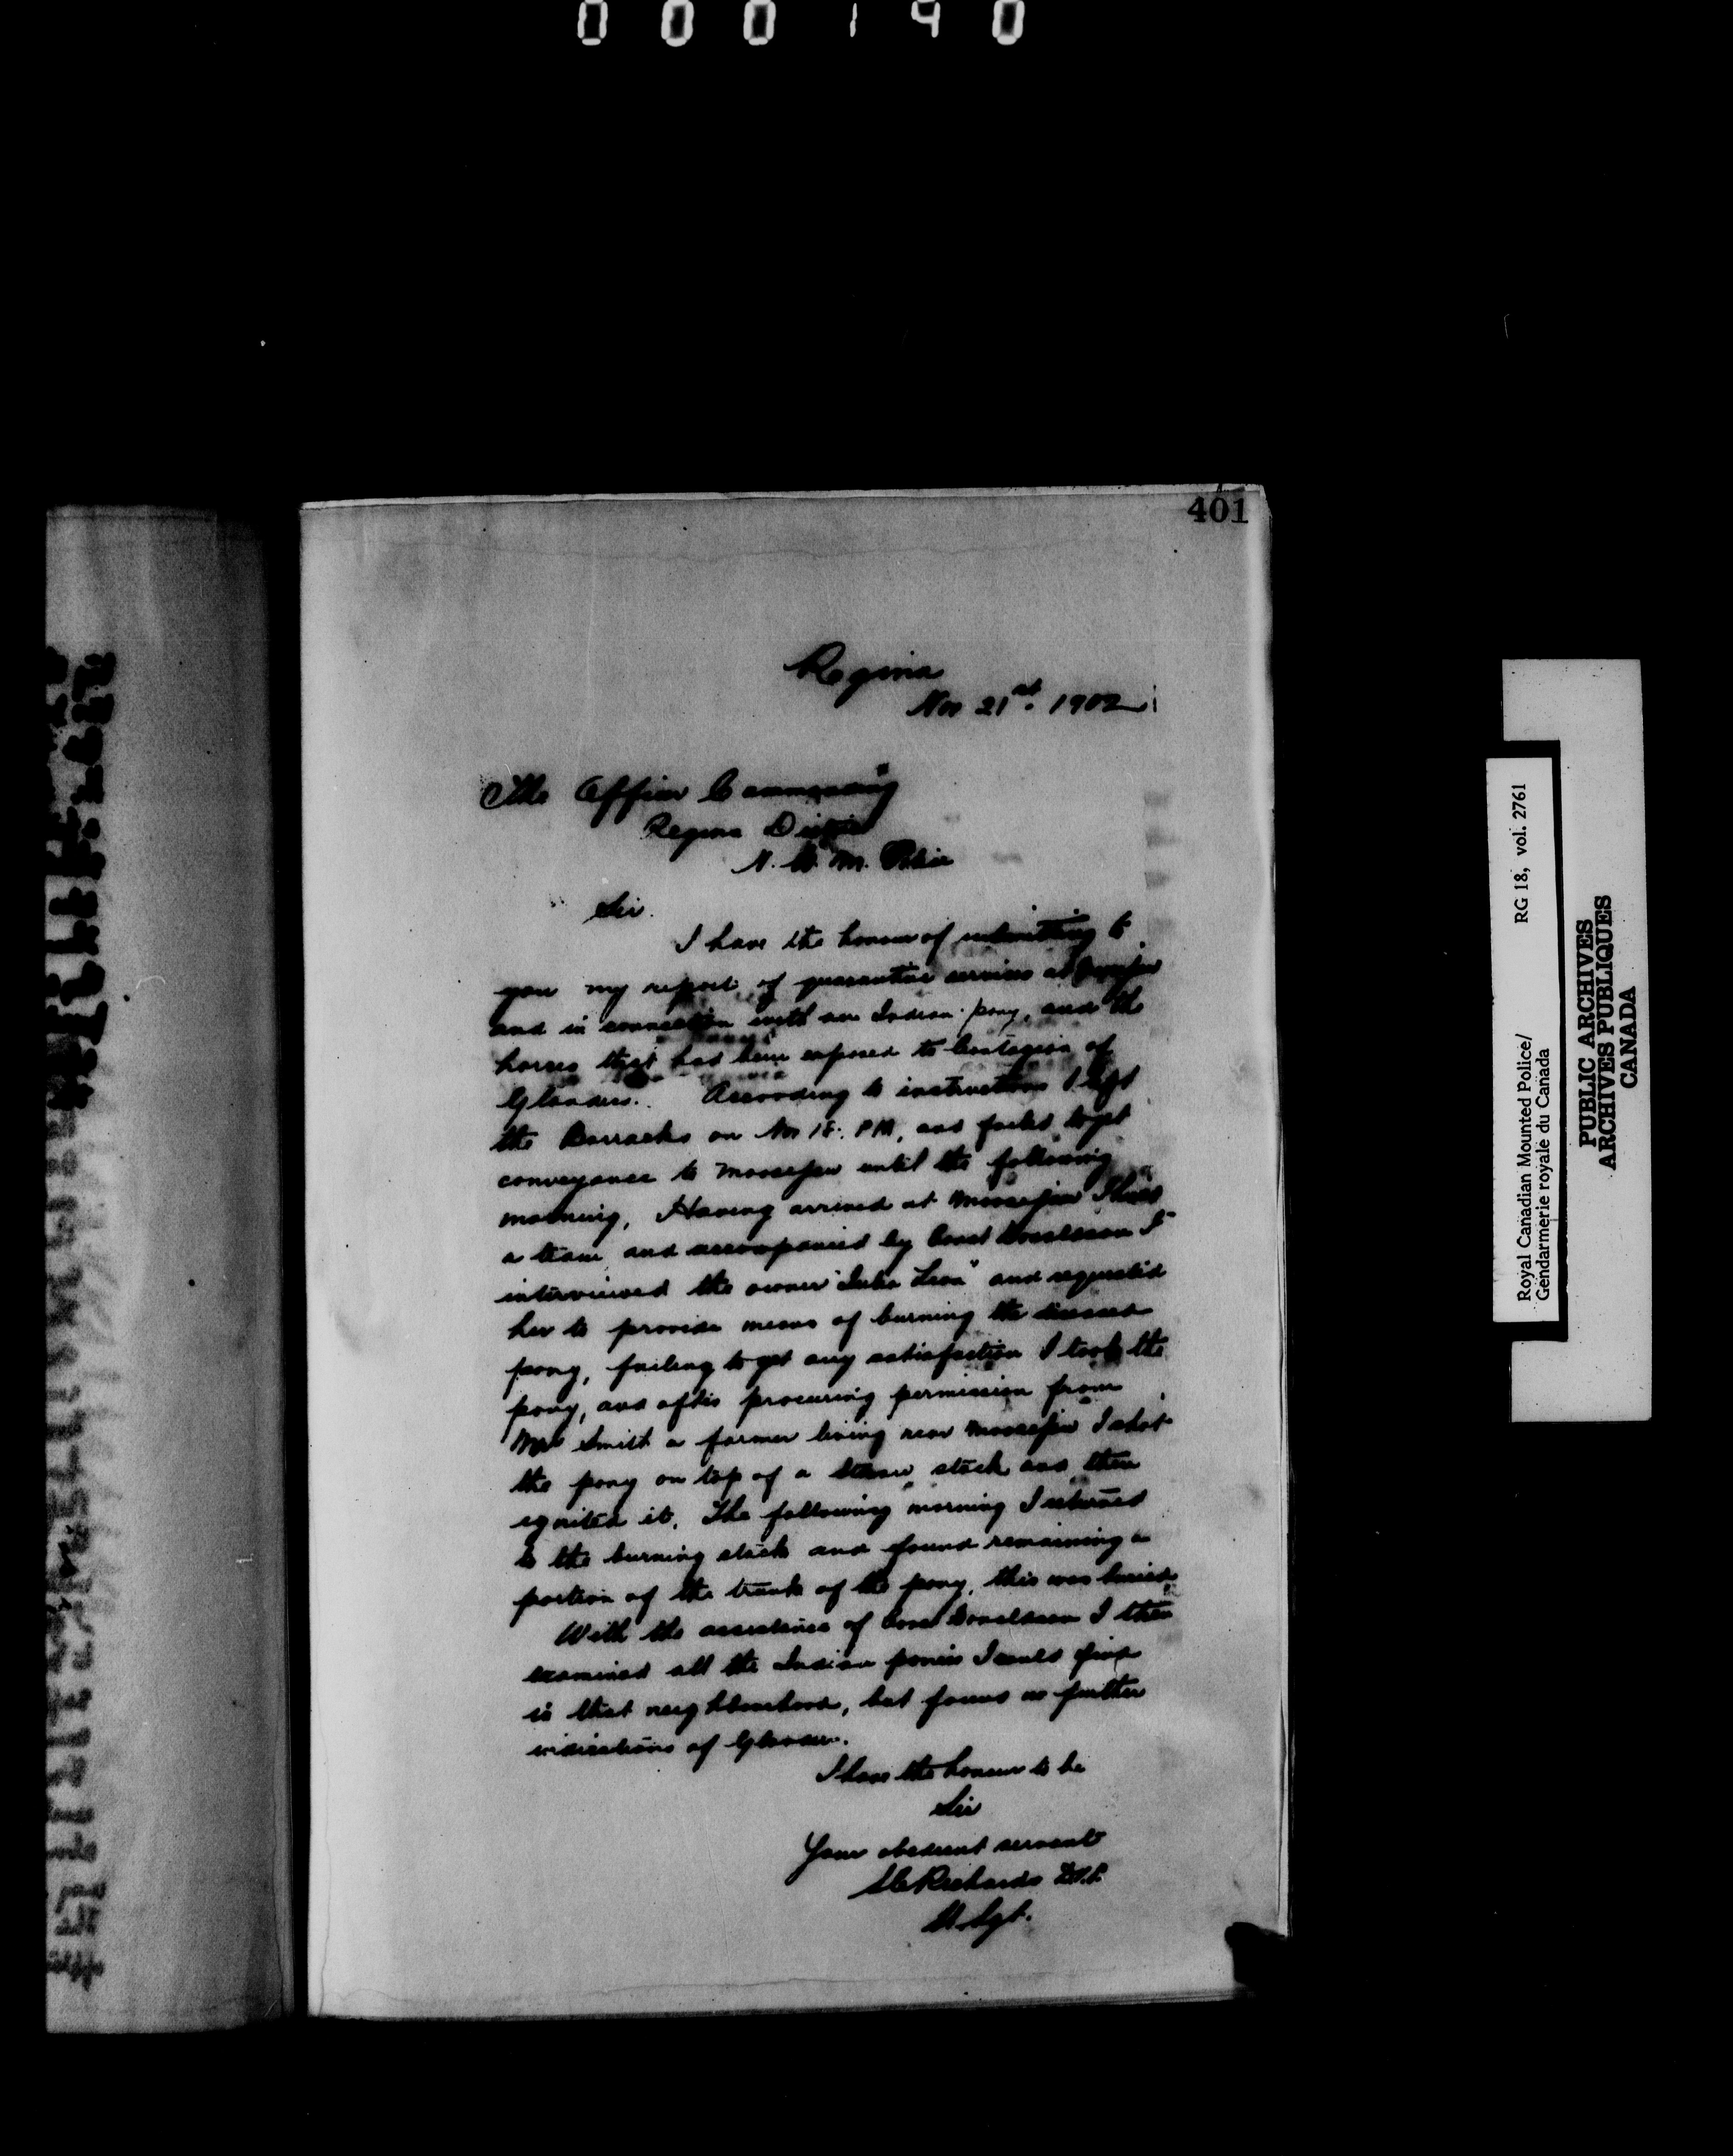 000190
401
Regina
Nov 21st. 1902
The Officer Commanding
Regina District
N. W. M. Police
Sir.
I have the honour of submitting to
you my report of quarantine services at Moosejaw
and in connection with an Indian pony, and the
horses that had been exposed to Contagion of
Glanders. According to instructions I left
the Barracks on Nov 18. PM, and failed to get
conveyance to Moosejaw until the following
morning, Having arrived at Moosejaw I hired
a team and accompanied by Const Donaldson I
interviewed the owner "Julia Lean" and requested
her to provide means of burning the diseased
pony, failing to get any satisfaction I took the
pony, and after procuring permission from
Mr Smith a farmer living near Moosejaw I shot
the pony on top of a straw stack and then
ignited it. The following morning I returned
to the burning stack and found remaining a
portion of the trunk of the pony, this was buried
With the assistance of Const Donaldson I then
examined all the Indian ponies I could find
in that neighbourhood, but found no further
indications of Glanders.
I have the honour to be
Sir
Your obedient servant
Richards
Sgt.
Royal Canadian Mounted Police/ RG 18, vol. 2761
Gendarmerie royale du Canada
PUBLIC ARCHIVES
ARCHIVES PUBLIQUES
CANADA